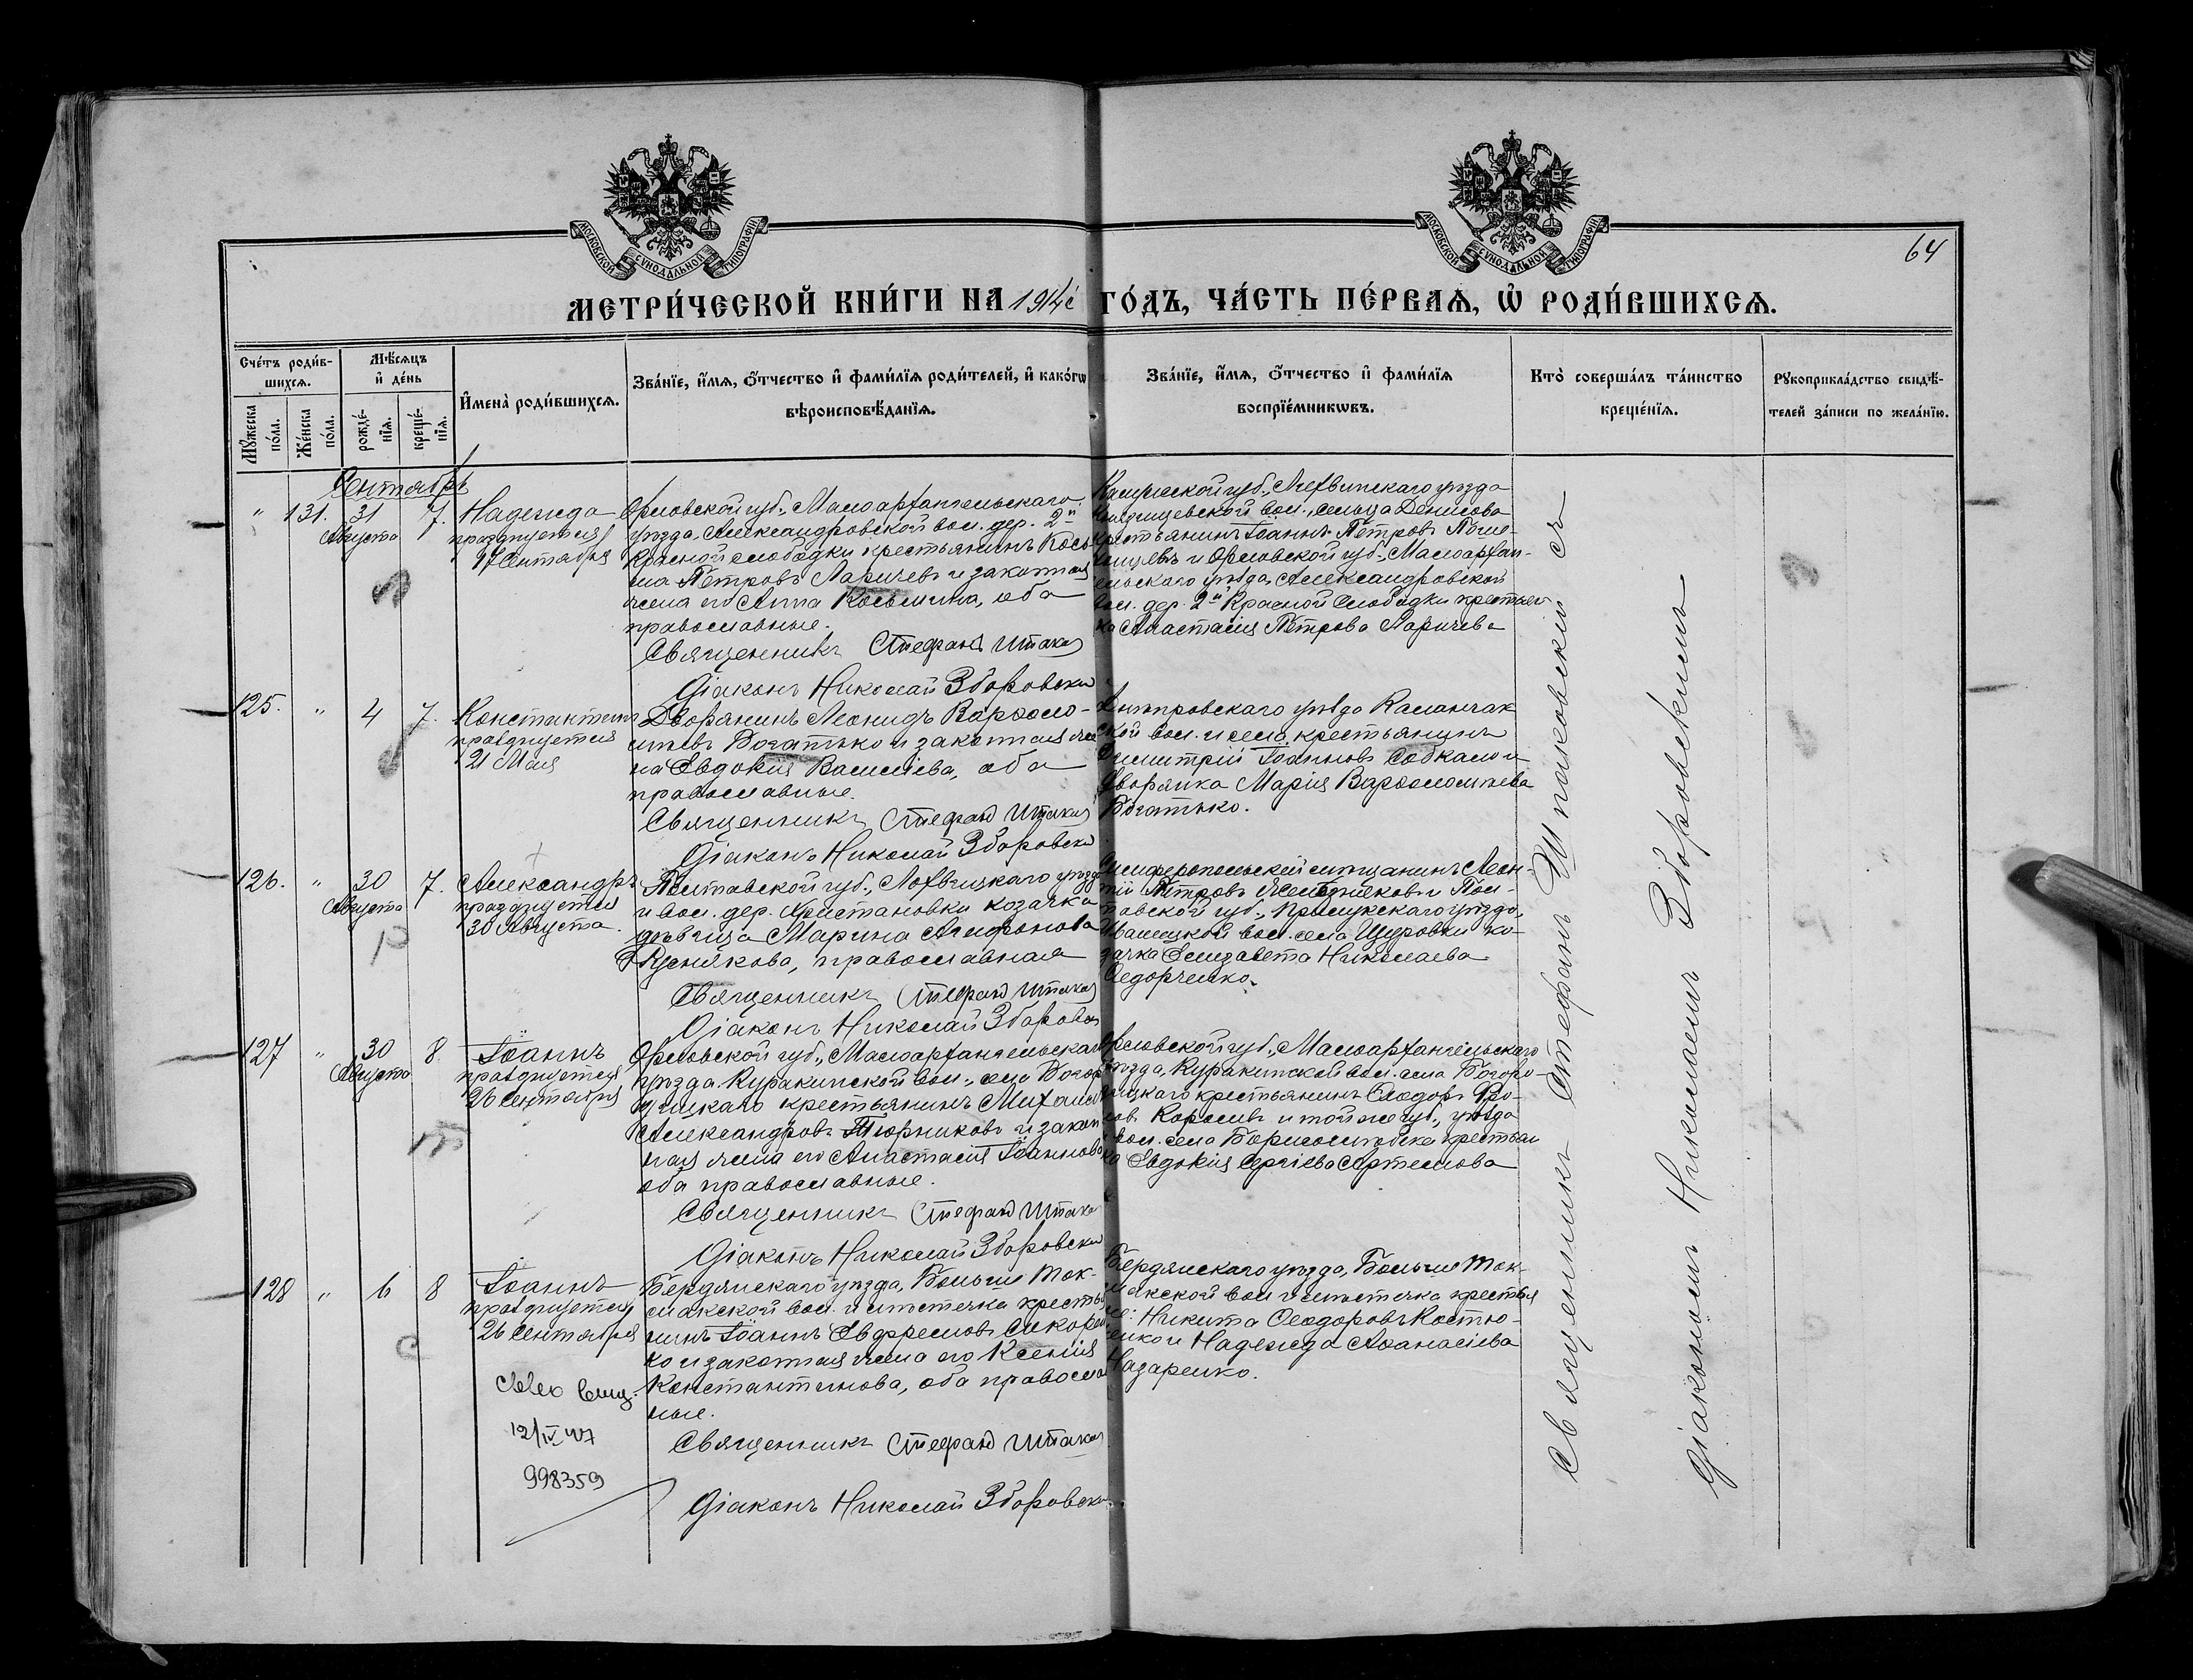 МОСКОВСКОЙ СѴНОДАЛЬНОЙ ТИПОГРАФІИ
МОСКОВСКОЙ СѴНОДАЛЬНОЙ ТИПОГРАФІИ
64
МЕТРИ́ЧЕСКОЙ КНИ́ГИ НА 1914й ГО́ДЪ, ЧА́СТЬ ПЕ́РВАѦ, Ѡ҆ РОДИ́ВШИХСѦ.
Сче́тъ роди́в-
шихсѧ.
Мꙋ́жеска по́ла.
Же́нска по́ла.
Мѣ́сѧцъ
и҆ де́нь
рожде́-
нїѧ.
креще́-
нїѧ.
И҆мена̀ роди́вшихсѧ.
Зва́нїе, и҆́мѧ, ѻ҆́тчество и҆ фами́лїѧ роди́телей, и҆ како́гѡ
вѣроисповѣ́данїѧ.
Зва́нїе, и҆́мѧ, ѻ҆́тчество и҆ фами́лїѧ
воспрїе́мникѡвъ.
Кто̀ соверша́лъ та́инство
креще́нїѧ.
Рꙋкоприкла́дство свидѣ́-
телей за́писи по жела́нїю.
Сентябрь
" 131. 31 Августа 7.
Надежда
празднуется
17 Сентября
Орловской губ., Малоархангельскаго
уѣзда, Александровской вол. дер. 2й
Красной слободки крестьянинъ Кось
ма Петровъ Ларичевъ и законная
жена его Анна Косьмина, оба
православные.
Священникъ Стефанъ Шпаков
Діаконъ Николай Зборовски
уѣзда
вол., сельца Денисова
крестьянинъ Іоаннъ Петровъ
и Орловской губ., Малоархан-
ельскаго уѣзда, Александровской
вол. дер. 2й Красной Слободки крестьян
ка Анастасія Петрова Ларичева
125. " 4 7.
Константинъ
празднуется
21 Мая
Дворянинъ Леонидъ Варѳоло-
меевъ Богатько и законная же
на Евдокія Василіева, оба
православные.
Священникъ Стефанъ Шпаков
Діаконъ Николай Зборовски
Днѣпровскаго уѣзда Каланчак
ской вол. и села крестьянинъ
Димитрій Іоанновъ Собкало и
дворянка Марія Варѳоломеева
Богатько.
126. " 30 Августа 7.
Александръ
празднуется
30 Августа.
Полтавской губ., Лохвицкаго уѣзда
и вол. дер. Христановки козачка
дѣвица Марина Агафонова
Руснякова, православная
Священникъ Стефанъ Шпаков
Діаконъ Николай Зборовск
Симферопольскій мѣщанинъ Леон-
тій Петровъ и Пол-
тавской губ., Прилукскаго уѣзда,
вол. села Щуровки ко-
зачка Елизавета Николаева
Ѳедорченко.
127 " 30 Августа 8.
Іоаннъ
празднуется
26 Сентября
Орловской губ., Малоархангельскаго
уѣзда Куракинской вол., села Богоро
дицкаго крестьянинъ Михаилъ
Александровъ Тюрниковъ и закон
ная жена его Анастасія Іоаннова
оба православные.
Священникъ Стефанъ Шпаков
Діаконъ Николай Зборовски
Орловской губ., Малоархангельскаго
уѣзда, Куракинской вол. села Богоро-
дицкаго крестьянинъ Ѳеодоръ Фро-
ловъ и той же губ., уѣзда
и вол. села Борисоглѣбска крестьян
ка Евдокія Сергіева Артемова
128 " 6 8
Іоаннъ
празднуется
26 Сентября
Бердянскаго уѣзда, Больше Ток-
макской вол. и мѣстечка крестья
нинъ Іоаннъ Евфремовъ Сикорен
ко и законная жена его Ксенія
Константинова, оба православ
ные.
Священникъ Стефанъ Шпаков
Діаконъ Николай Зборовски
Бердянскаго уѣзда, Больше Ток-
макской вол. и мѣстечка крестья
не: Никита Ѳеодоровъ Костю-
ченко и Надежда Аѳанасіева
Назаренко.
12/IV 47
998359
Священникъ Стефанъ Шпаковскій съ
діакономъ Николаемъ Зборовскимъ